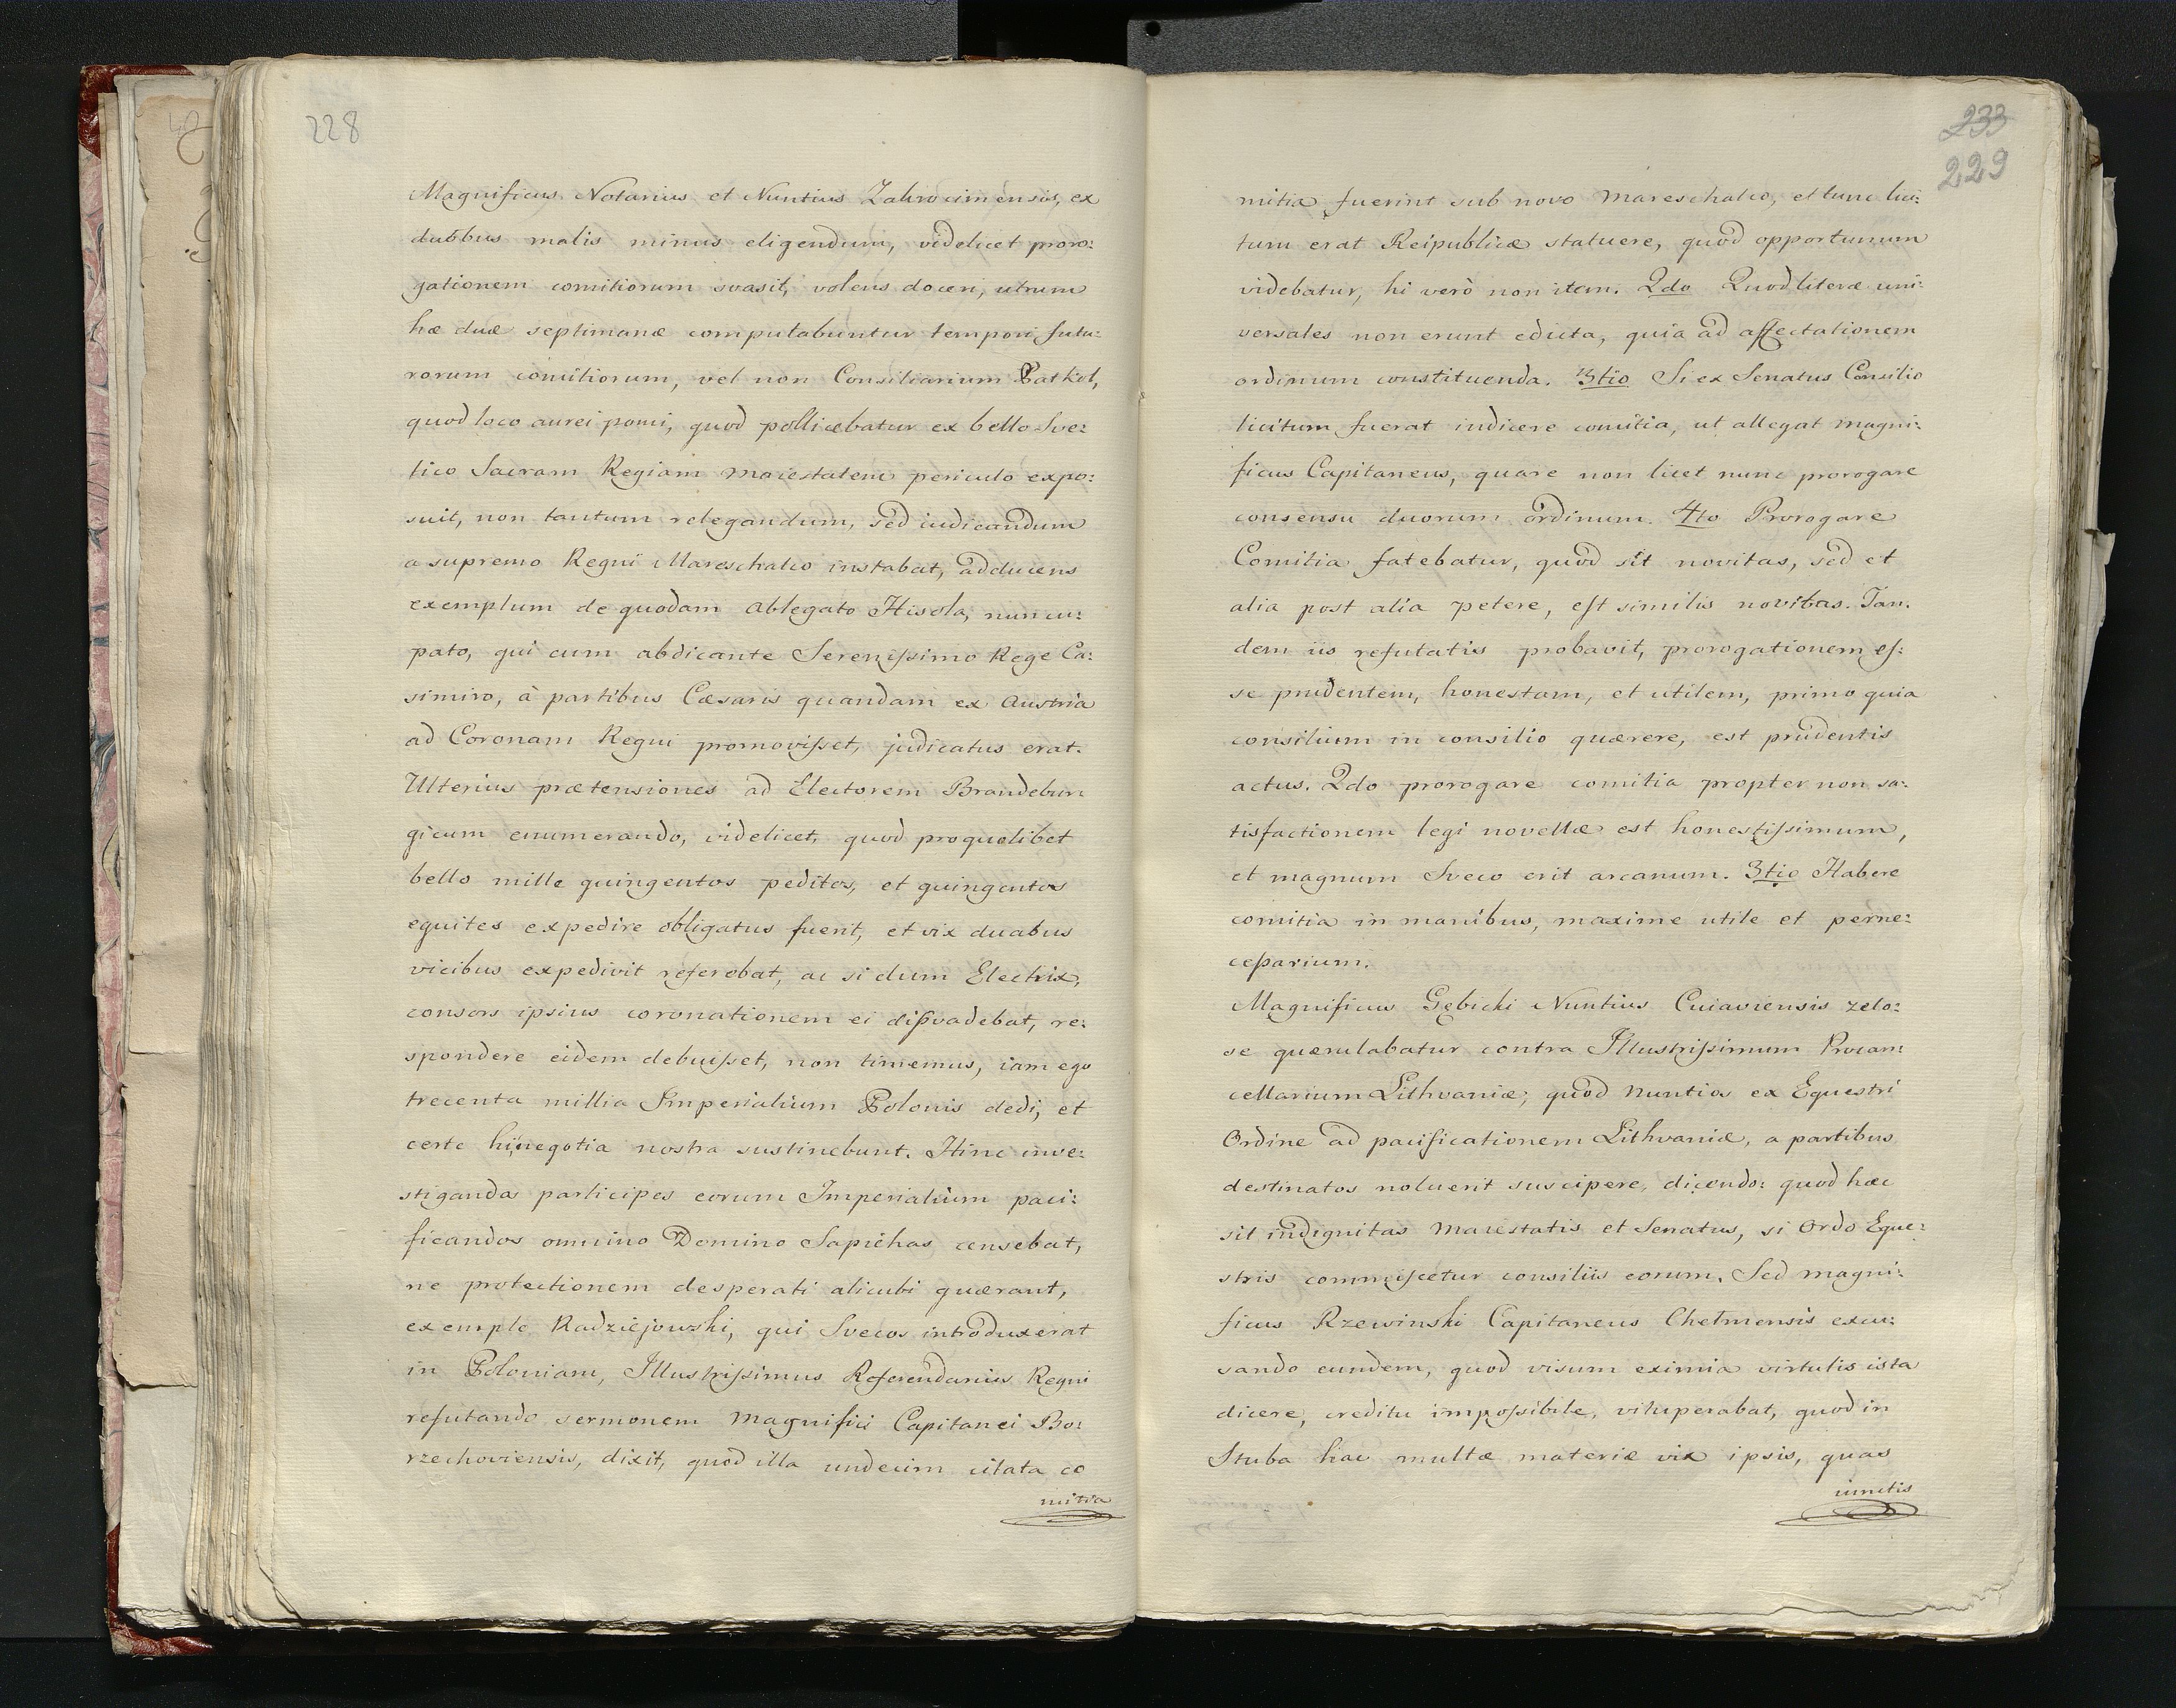 228
Magnificus Notarius et Nuntius Zakrocimensis, ex
duobus malis minus eligendum, videlicet proro:
gationem comitiorum svasit, volens doceri, utrum
hæ duæ septimanæ computabuntur tempori futu:
rorum comitiorum, vel non Consiliarium Patkul,
quod loco aurei pomi, quod pollicebatur ex bello Sve:
tico Sacram Regiam Maiestatem periculo expo:
suit, non tantum relegandum, sed iudicandum
a supremo Regni Mareschalco instabat, adducens
exemplum de quodam Ablegato Hisola, nuncu:
pato, qui cum abdicante Serenissimo Rege Ca:
simiro, à partibus Cæsaris quandam ex Austria
ad Coronam Regni promovisset, judicatus erat.
Ulterius prætensiones ad Electorem Brandebur:
gicum enumerando, videlicet, quod proquolibet
bello mille quingentos pedites, et quingentos
equites expedire obligatus fuerit, et vix duabus
vicibus expedivit referebat, ac si dum Electrix,
consors ipsius coronationem ei dissvadebat, re:
spondere eidem debuisset, non timemus, iam ego
trecenta millia Imperialium Polonis dedi, et
certe hi negotia nostra sustinebunt. Hinc inve:
stigandos participes eorum Imperialium paci:
ficandos omnino Domino Sapiehas censebat,
ne protectionem desperati alicubi quærant,
exemplo Radziejowski, qui Svecos introduxerat
in Poloniam, Illustrissimus Referendarius Regni
refutando sermonem Magnifici Capitanei Bo:
rzechoviensis, dixit, quod illa undecim citata co
mitia
233
229
mitia fuerint sub novo Mareschalco, et tunc lici:
tum erat Reipublicæ statuere, quod opportunum
videbatur, hi verò non item. 2do Quod literæ uni:
versales non erunt edicta, quia ad affectationem
ordinum constituenda. 3tio Si ex Senatus Consilio
licitum fuerat indicere comitia, ut allegat Magni:
ficus Capitaneus, quare non licet nunc prorogare
consensu duorum ordinum. 4to Prorogare
Comitia fatebatur, quod sit novitas, sed et
alia post alia petere, est similis novitas. Tan:
dem iis refutatis probavit, prorogationem es:
se prudentem, honestam, et utilem, primo quia
consilium in consilio quærere, est prudentis
actus. 2do prorogare comitia propter non sa:
tisfactionem legi novellæ est honestissimum,
et magnum Sveco erit arcanum. 3tio Habere
comitia in manibus, maxime utile et perne:
cessarium.
Magnificus Gębicki Nuntius Cuiaviensis zelo:
se quærulabatur contra Illustrissimum Procan:
cellarium Lithvaniæ, quod Nuntios ex Equestri
Ordine ad pacificationem Lithvaniæ, a partibus
destinatos noluerit suscipere, dicendo: quod hæc
sit indignitas Maiestatis et Senatus, si Ordo Eque:
stris commiscetur consiliis eorum. Sed Magni:
ficus Rzewinski Capitaneus Chelmensis excu:
sando eundem, quod visum eximia virtutis ista
dicere, creditu impossibile, vituperabat, quod in
Stuba hac multæ materiæ vix ipsis, quas